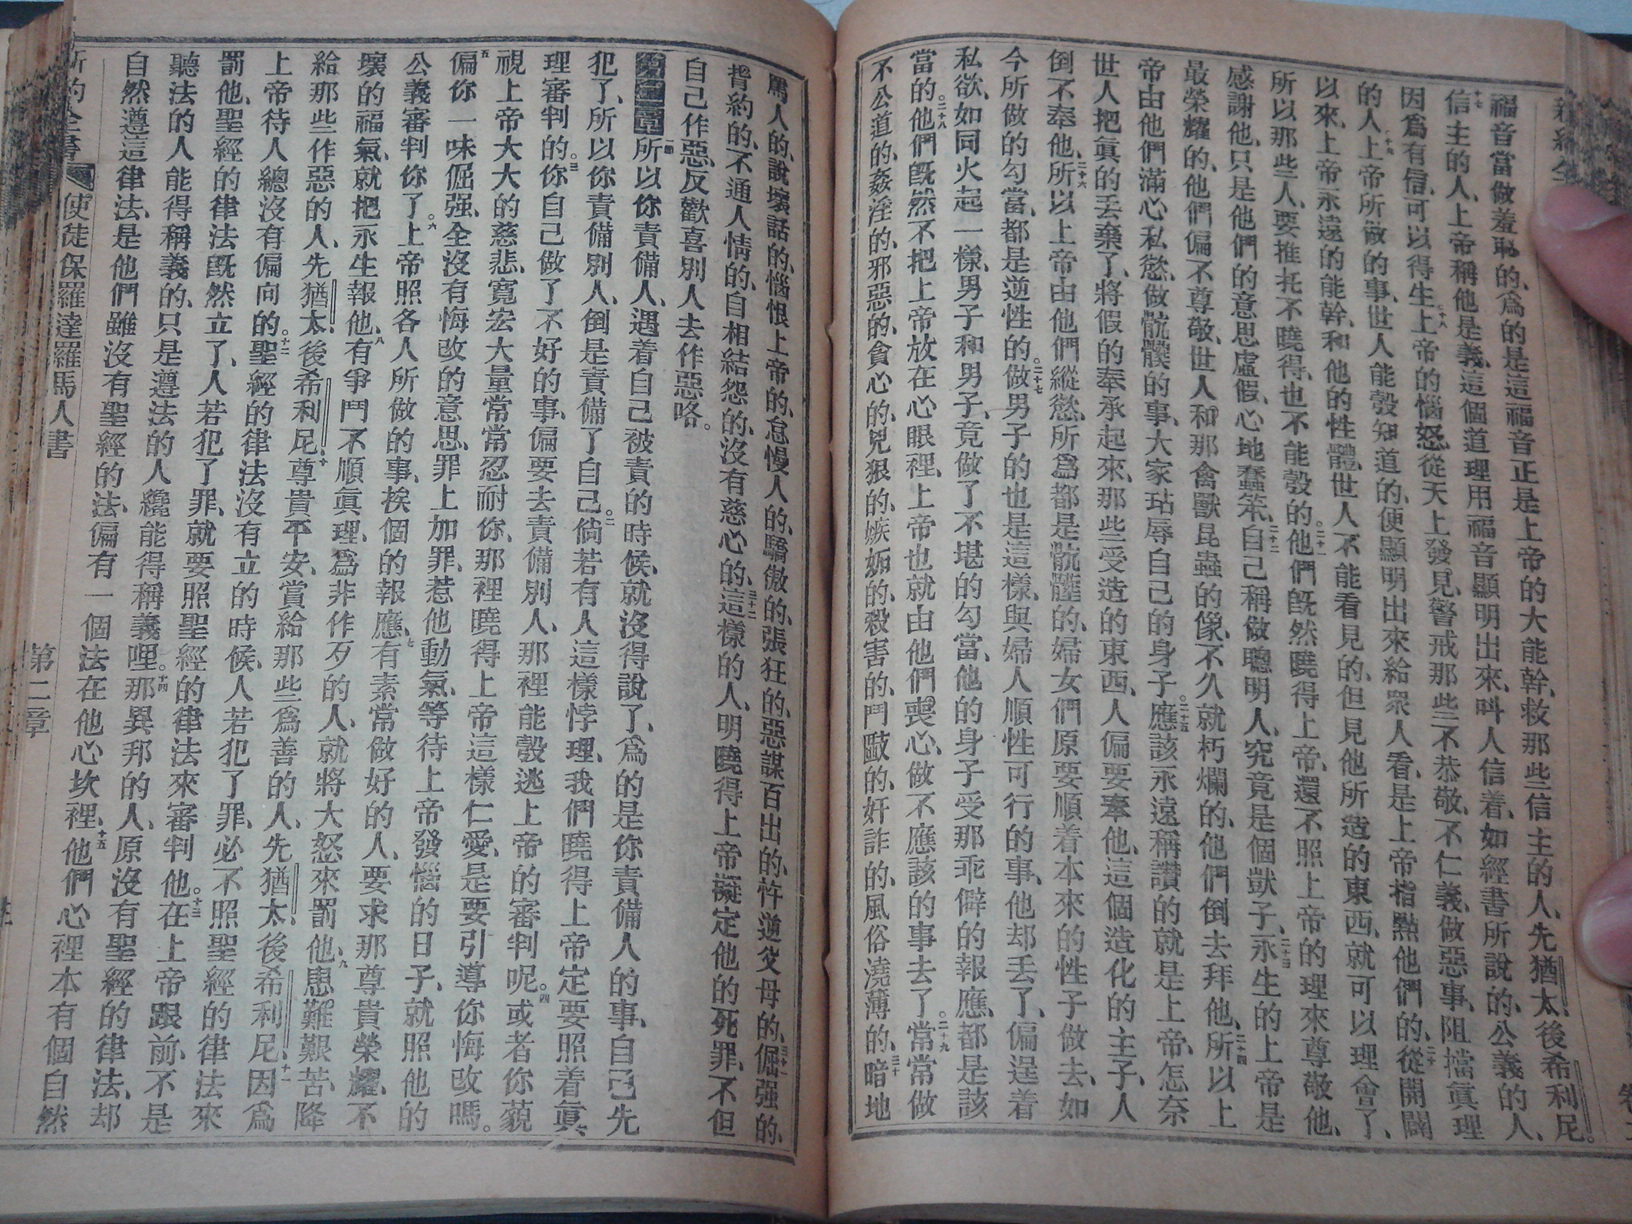 福音當做羞恥的、爲的是這福音正是上帝的大能幹、救那些信主的人、先猶太、後希利尼。
十七信主的人、上帝稱他是義、這個道理用福音顯明出來、呌人信着、如經書所說的、公義的人、
因爲有信、可以得生。十八上帝的惱怒、從天上發見、警戒那些不恭敬、不仁義、做惡事、阻擋眞理
的人、十九上帝所做的事、世人能彀知道的、便顯明出來給眾人看、是上帝指點他們的、二十從開闢
以來、上帝永遠的能幹、和他的性體、世人不能看見的、但見他所造的東西、就可以理會了、
所以那些人、要推托不曉得、也不能彀的。二十一他們旣然曉得上帝、還不照上帝的理來尊敬他、
感謝他、只是他們的意思虛假、心地蠢笨、二十二自己稱做聰明人、究竟是個獃子、二十三永生的上帝是
最榮耀的、他們偏不尊敬、世人和那禽獸昆蟲的像、不久就朽爛的、他們倒去拜他、二十四所以上
帝由他們滿心私慾、做骯髒的事、大家玷辱自己的身子。二十五應該永遠稱讚的就是上帝、怎奈
世人把眞的丢棄了、將假的奉承起來、那些受造的東西、人偏要奉他、這個造化的主子、人
倒不奉他、二十六所以上帝由他們縱慾、所爲都是骯髒的、婦女們原要順着本來的性子做去、如
今所做的勾當、都是逆性的。二十七做男子的也是這樣、與婦人順性可行的事、他却丢了、偏逞着
私欲、如同火起一樣、男子和男子、竟做了不堪的勾當、他的身子受那乖僻的報應、都是該
當的。二十八他們旣然不把上帝放在心眼裡、上帝也就由他們喪心、做不應該的事去了。二十九常常做
不公道的、姦淫的、邪惡的、貪心的、兇狠的、嫉妬的、殺害的、鬥毆的、奸詐的、風俗澆薄的、三十暗地
罵人的、說壞話的、惱恨上帝的、怠慢人的、驕傲的、張狂的、惡謀百出的、忤逆父母的、三十一倔强的、
背約的、不通人情的、自相結怨的、沒有慈心的、三十二這樣的人、明曉得上帝擬定他的死罪、不但
自己作惡、反歡喜別人去作惡咯。
第二章一所以你責備人、遇着自己被責的時候、就沒得說了、爲的是你責備人的事、自己先
犯了、所以你責備別人、倒是責備了自己。二倘若有人這樣悖理、我們曉得上帝定要照着眞
理審判的。三你自己做了不好的事、偏要去責備別人、那裡能彀逃上帝的審判呢。四或者你藐
視上帝大大的慈悲、寬宏大量、常常忍耐你、那裡曉得上帝這樣仁愛、是要引導你悔改嗎。
五偏你一味倔强、全沒有悔改的意思、罪上加罪、惹他動氣、等待上帝發惱的日子、就照他的
公義審判你了。六上帝照各人所做的事、挨個的報應、七有素常做好的人、要求那尊貴榮耀、不
壞的福氣、就把永生報他、八有爭鬥不順眞理、爲非作歹的人、就將大怒來罰他、九患難艱苦、降
給那些作惡的人、先猶太、後希利尼、十尊貴平安、賞給那些爲善的人、先猶太、後希利尼、十一因爲
上帝待人、總沒有偏向的。十二聖經的律法沒有立的時候、人若犯了罪、必不照聖經的律法來
罰他、聖經的律法旣然立了、人若犯了罪、就要照聖經的律法來審判他。十三在上帝跟前、不是
聽法的人能得稱義的、只是遵法的人纔能得稱義哩。十四那異邦的人、原沒有聖經的律法、却
自然遵這律法、是他們雖沒有聖經的法、偏有一個法在他心坎裡、十五他們心裡本有個自然
新約全書 使徒保羅達羅馬人書 第二章